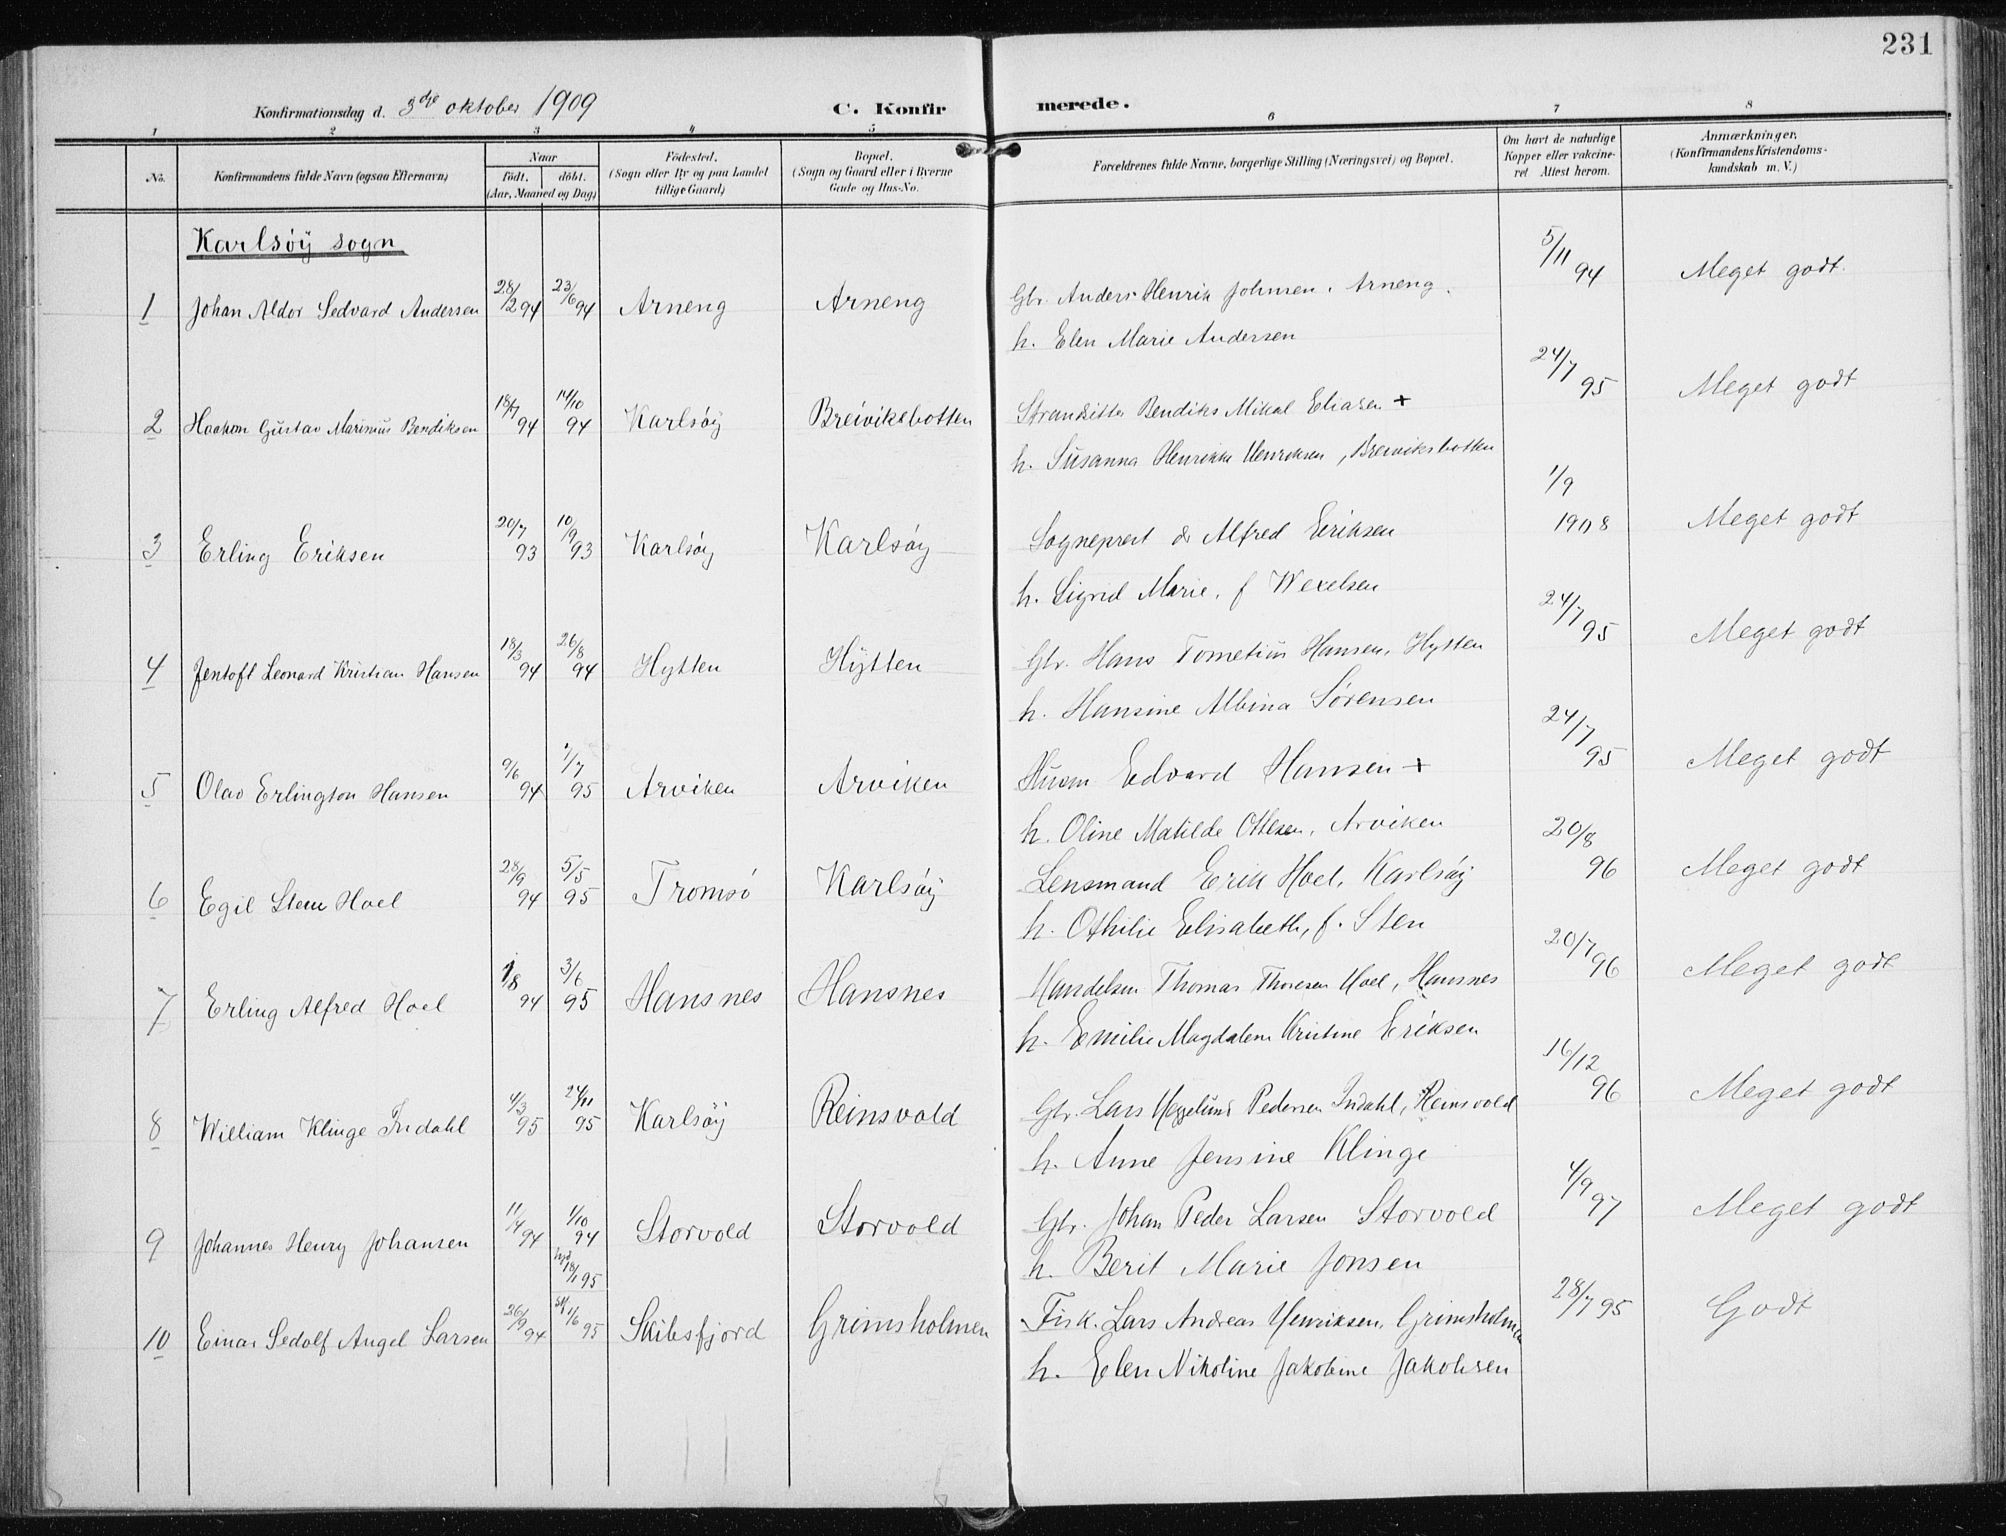 231
Konfirmationsdag d. 3die oktober 1909 C. Konfirmerede.
1 2 3 4 5 6 7 8
No. Konfirmandens fulde Navn (ogsaa Efternavn) Naar født. døbt. (Aar, Maaned og Dag) Fødested. (Sogn eller By og paa Landet tillige Gaard) Bopæl. (Sogn og Gaard eller i Byerne Gade og Hus-No. Forældrenes fulde Navne, borgerlige Stilling (Næringsvei) og Bopæl. Om havt de naturlige Kopper eller vakcineret Attest herom. Anmærkninger. (Konfirmandens Kristendomskundskab m. V.)
Karlsöy sogn
1 Johan Aldor Sedvard Andersen 28/2 94 23/6 94 Arneng Arneng Gbr. Anders Henrik Johnsen, Arneng. 5/11 94 Meget godt.
h. Elen Marie Andersen
2 Haakon Gustav Marinius Bendiksen 18/7 94 14/10 94 Karlsöy Breivikbotten Strandsitter Bendiks Mikal Eliasen + 24/7 95 Meget godt
h. Susanna Henrikke Henriksen, Breiviksbotten
3 Erling Eriksen 20/7 93 10/9 93 Karlsöy Karlsöy Sogneprest Alfred Eriksen 1/9 1908 Meget godt
h. Sigrid Marie, f Wexelsen
4 Jentoft Leonard Kristian Hansen 18/3 94 26/8 94 Hytten Hytten Gbr. Hans Tometius Hansen, Hytten 24/7 95 Meget godt
h. Hansine Albina Sørensen
5 Olav Erlington Hansen 9/6 94 1/7 95 Arviken Arviken Husm Edvard Hansen + 24/7 95 Meget godt
h. Oline Matilde Ottesen, Arviken
6 Egil Steen Hoel 28/9 94 5/5 95 Tromsö Karlsöy Lensmand Erik Hoel, Karlsöy 20/8 96 Meget godt
h. Othilie Elisabeth, f. Sten
7 Erling Alfred Hoel 1/8 94 3/6 95 Hansnes Hansnes Handelsm Thomas Thoresen Hoel, Hansnes 20/7 96 Meget godt
h. Emilie Magdalene Kristine Eriksen
8 William Klinge Indahl 4/3 95 24/11 95 Karlsöy Reinsvold Gbr. Lars Heggelund Pedersen Indahl, Reinsvold 16/12 96 Meget godt
h. Anne Jensine Klinge
9 Johannes Henry Johansen 11/4 94 1/10 94 Storvold Storvold Gbr. Johan Peder Larsen Storvold 4/9 97 Meget godt
18/1 95 h. Berit Marie Jonsen
10 Einar Sedolf Angel Larsen 26/9 94 1/6 95 Skibsfjord Grimsholmen Fisk. Lars Andreas Henriksen, Grimsholmen 28/7 95 Godt
h. Elen Nikoline Jakobine Jakobsen